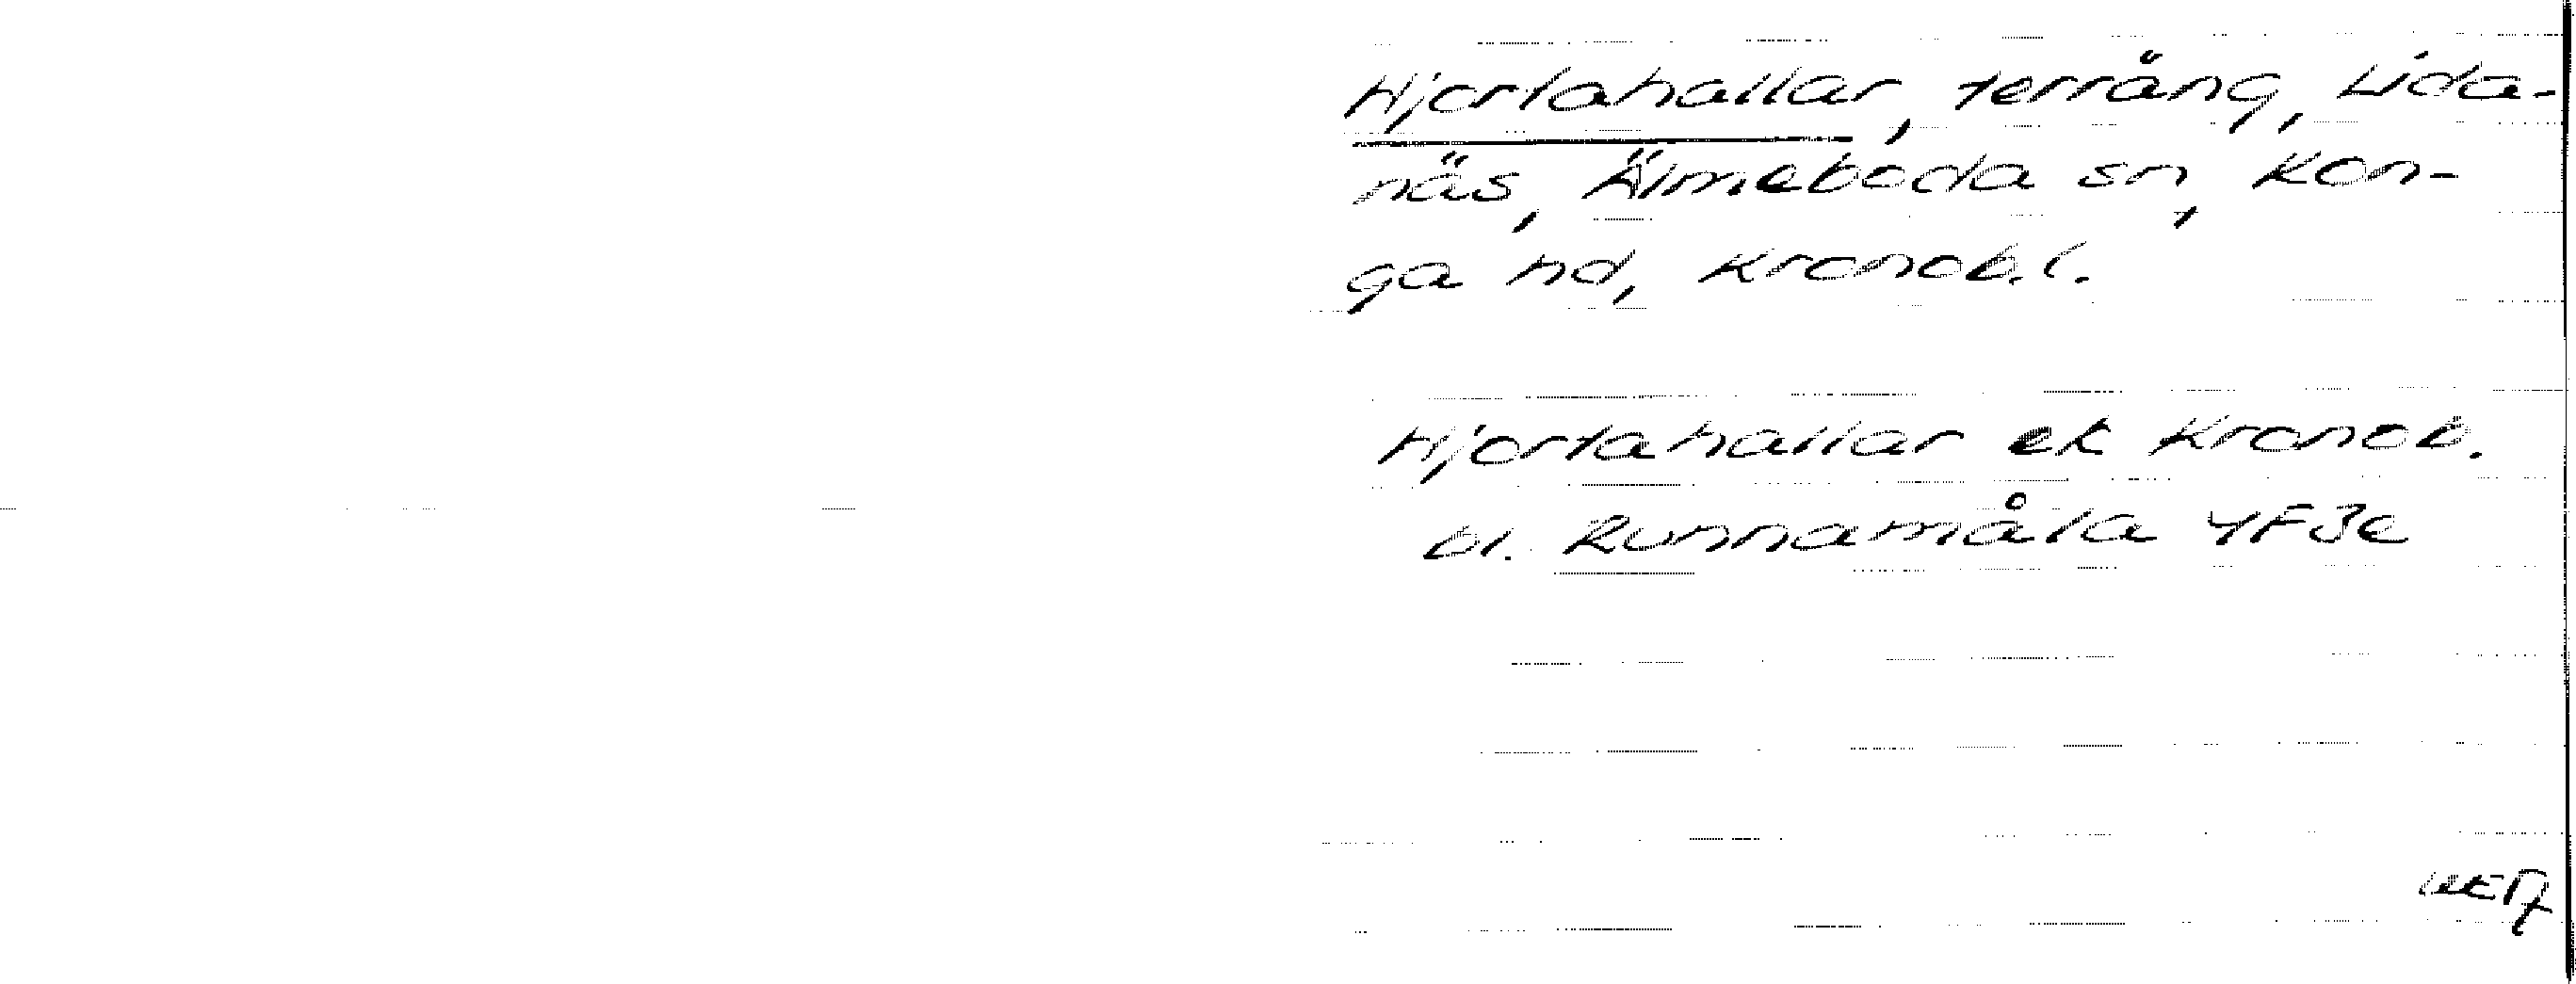 Hjortahallar, terräng, Lida-
näs, Älmeboda sn, Kon-
ga hd, Kronob. l.
Hjortahallar ek Kronob.
bl. Runnamåla 4F3e